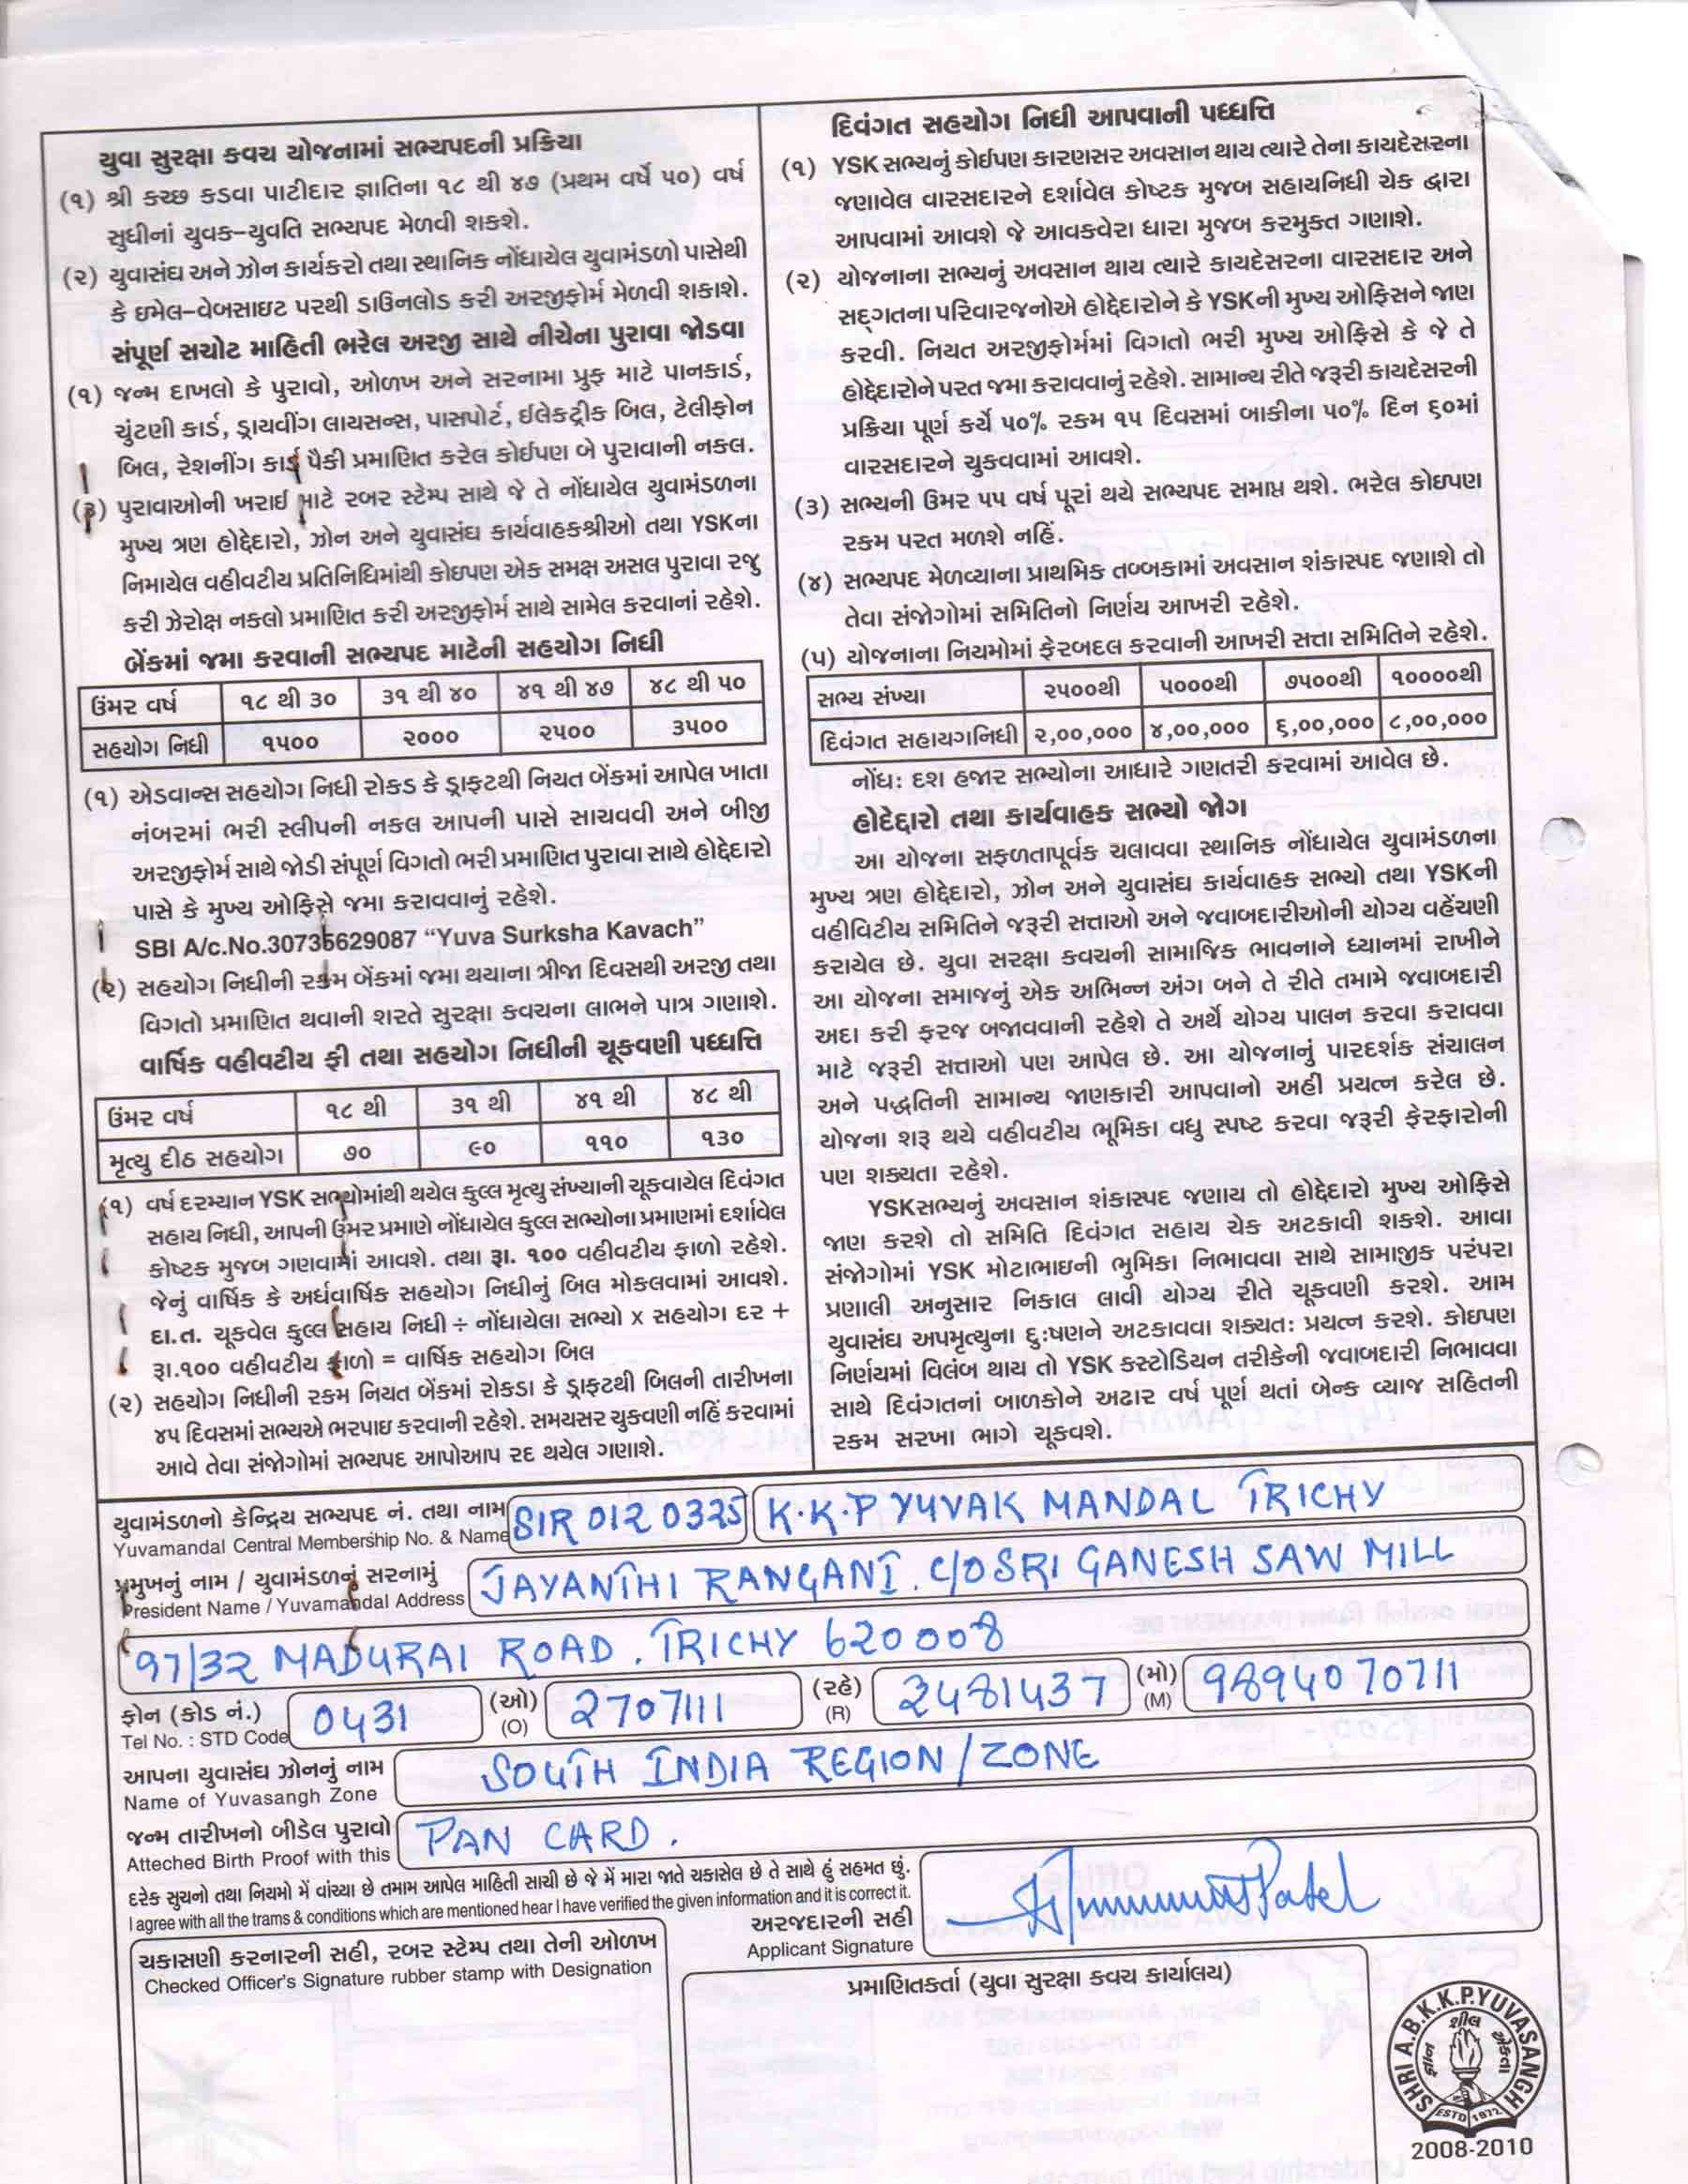 યુવા સુરક્ષા કવચ યોજનામાં સભ્યપદની પ્રક્રિયા
(૧) શ્રી કચ્છ કડવા પાટીદાર જ્ઞાતિના ૧૮ થી ૪૭ (પ્રથમ વર્ષે ૫૦) વર્ષ
સુધીનાં યુવક–યુવતિ સભ્યપદ મેળવી શકશે.
(૨) યુવાસંઘ અને ઝોન કાર્યકરો તથા સ્થાનિક નોંધાયેલ યુવામંડળો પાસેથી
કે ઇમેલ–વેબસાઇટ પરથી ડાઉનલોડ કરી અરજીફોર્મ મેળવી શકાશે.
સંપૂર્ણ સચોટ માહિતી ભરેલ અરજી સાથે નીચેના પુરાવા જોડવા
(૧) જન્મ દાખલો કે પુરાવો, ઓળખ અને સરનામા પ્રુફ માટે પાનકાર્ડ,
ચુંટણી કાર્ડ, ડ્રાયવીંગ લાયસન્સ, પાસપોર્ટ, ઈલેકટ્રીક બિલ, ટેલીફોન
બિલ, રેશનીંગ કાર્ડ પૈકી પ્રમાણિત કરેલ કોઈપણ બે પુરાવાની નકલ.
પુરાવાઓની ખરાઈ માટે રબર સ્ટેમ્પ સાથે જે તે નોંધાયેલ યુવામંડળના
મુખ્ય ત્રણ હોદ્દેદારો, ઝોન અને યુવાસંઘ કાર્યવાહકશ્રીઓ તથા YSKના
નિમાયેલ વહીવટીય પ્રતિનિધિમાંથી કોઇપણ એક સમક્ષ અસલ પુરાવા રજુ
કરી ઝેરોક્ષ નકલો પ્રમાણિત કરી અરજીફોર્મ સાથે સામેલ કરવાનાં રહેશે.
બેંકમાં જમા કરવાની સભ્યપદ માટેની સહયોગ નિધી
ઉંમર વર્ષ ૧૮ થી ૩૦ ૩૧ થી ૪૦ ૪૧ થી ૪૭ ૪૮ થી ૫૦
સહયોગ નિધી ૧૫૦૦ ૨૦૦૦ ૨૫૦૦ ૩૫૦૦
(૧) એડવાન્સ સહયોગ નિધી રોકડ કે ડ્રાફટથી નિયત બેંકમાં આપેલ ખાતા
નંબરમાં ભરી સ્લીપની નકલ આપની પાસે સાચવવી અને બીજી
અરજીફોર્મ સાથે જોડી સંપૂર્ણ વિગતો ભરી પ્રમાણિત પુરાવા સાથે હોદ્દેદારો
પાસે કે મુખ્ય ઓફિસે જમા કરાવવાનું રહેશે.
SBI A/c.No.30735629087 “Yuva Surksha Kavach”
(૨) સહયોગ નિધીની રકમ બેંકમાં જમા થયાના ત્રીજા દિવસથી અરજી તથા
વિગતો પ્રમાણિત થવાની શરતે સુરક્ષા કવચના લાભને પાત્ર ગણાશે.
વાર્ષિક વહીવટીય ફી તથા સહયોગ નિધીની ચૂકવણી પધ્ધત્તિ
ઉંમર વર્ષ ૧૮ થી ૩૧ થી ૪૧ થી ૪૮ થી
મૃત્યુ દીઠ સહયોગ ૭૦ ૯૦ ૧૧૦ ૧૩૦
(૧) વર્ષ દરમ્યાન YSK સભ્યોમાંથી થયેલ કુલ્લ મૃત્યુ સંખ્યાની ચૂકવાયેલ દિવંગત
સહાય નિધી, આપની ઉંમર પ્રમાણે નોંધાયેલ કુલ્લ સભ્યોના પ્રમાણમાં દર્શાવેલ
કોષ્ટક મુજબ ગણવામાં આવશે. તથા રૂા. ૧૦૦ વહીવટીય ફાળો રહેશે.
જેનું વાર્ષિક કે અર્ધવાર્ષિક સહયોગ નિધીનું બિલ મોકલવામાં આવશે.
દા.ત. ચૂકવેલ કુલ્લ સહાય નિધી ÷ નોંધાયેલા સભ્યો x સહયોગ દર +
રૂા.૧૦૦ વહીવટીય ફાળો = વાર્ષિક સહયોગ બિલ
(૨) સહયોગ નિધીની રકમ નિયત બેંકમાં રોકડા કે ડ્રાફટથી બિલની તારીખના
૪૫ દિવસમાં સભ્યએ ભરપાઇ કરવાની રહેશે. સમયસર ચુકવણી નહિં કરવામાં
આવે તેવા સંજોગોમાં સભ્યપદ આપોઆપ રદ થયેલ ગણાશે.
દિવંગત સહયોગ નિધી આપવાની પધ્ધત્તિ
(૧) YSK સભ્યનું કોઈપણ કારણસર અવસાન થાય ત્યારે તેના કાયદેસરના
જણાવેલ વારસદારને દર્શાવેલ કોષ્ટક મુજબ સહાયનિધી ચેક દ્વારા
આપવામાં આવશે જે આવકવેરા ધારા મુજબ કરમુકત ગણાશે.
(૨) યોજનાના સભ્યનું અવસાન થાય ત્યારે કાયદેસરના વારસદાર અને
સદ્ગતના પરિવારજનોએ હોદ્દેદારોને કે YSKની મુખ્ય ઓફિસને જાણ
કરવી. નિયત અરજીફોર્મમાં વિગતો ભરી મુખ્ય ઓફિસે કે જે તે
હોદ્દેદારોને પરત જમા કરાવવાનું રહેશે. સામાન્ય રીતે જરૂરી કાયદેસરની
પ્રક્રિયા પૂર્ણ કર્યે ૫૦% રકમ ૧૫ દિવસમાં બાકીના ૫૦% દિન ૬૦માં
વારસદારને ચુકવવામાં આવશે.
(૩) સભ્યની ઉમર ૫૫ વર્ષ પૂરાં થયે સભ્યપદ સમાપ્ત થશે. ભરેલ કોઇપણ
રકમ પરત મળશે નહિં.
(૪) સભ્યપદ મેળવ્યાના પ્રાથમિક તબ્બકામાં અવસાન શંકાસ્પદ જણાશે તો
તેવા સંજોગોમાં સમિતિનો નિર્ણય આખરી રહેશે.
(૫) યોજનાના નિયમોમાં ફેરબદલ કરવાની આખરી સત્તા સમિતિને રહેશે.
સભ્ય સંખ્યા ૨૫૦૦થી ૫૦૦૦થી ૭૫૦૦થી ૧૦૦૦૦થી
દિવંગત સહાયગનિધી ૨,૦૦,૦૦૦ ૪,૦૦,૦૦૦ ૬,૦૦,૦૦૦ ૮,૦૦,૦૦૦
નોંધઃ દશ હજાર સભ્યોના આધારે ગણતરી કરવામાં આવેલ છે.
હોદેદ્દારો તથા કાર્યવાહક સભ્યો જોગ
આ યોજના સફળતાપૂર્વક ચલાવવા સ્થાનિક નોંધાયેલ યુવામંડળના
મુખ્ય ત્રણ હોદ્દેદારો, ઝોન અને યુવાસંઘ કાર્યવાહક સભ્યો તથા YSKની
વહીવિટીય સમિતિને જરૂરી સત્તાઓ અને જવાબદારીઓની યોગ્ય વહેંચણી
કરાયેલ છે. યુવા સરક્ષા કવચની સામાજિક ભાવનાને ધ્યાનમાં રાખીને
આ યોજના સમાજનું એક અભિન્ન અંગ બને તે રીતે તમામે જવાબદારી
અદા કરી ફરજ બજાવવાની રહેશે તે અર્થે યોગ્ય પાલન કરવા કરાવવા
માટે જરૂરી સત્તાઓ પણ આપેલ છે. આ યોજનાનું પારદર્શક સંચાલન
અને પદ્ધતિની સામાન્ય જાણકારી આપવાનો અહીં પ્રયત્ન કરેલ છે.
યોજના શરૂ થયે વહીવટીય ભૂમિકા વધુ સ્પષ્ટ કરવા જરૂરી ફેરફારોની
પણ શક્યતા રહેશે.
YSKસભ્યનું અવસાન શંકાસ્પદ જણાય તો હોદ્દેદારો મુખ્ય ઓફિસે
જાણ કરશે તો સમિતિ દિવંગત સહાય ચેક અટકાવી શકશે. આવા
સંજોગોમાં YSK મોટાભાઇની ભુમિકા નિભાવવા સાથે સામાજીક પરંપરા
પ્રણાલી અનુસાર નિકાલ લાવી યોગ્ય રીતે ચૂકવણી કરશે. આમ
યુવાસંઘ અપમૃત્યુના દુઃષણને અટકાવવા શક્યતઃ પ્રયત્ન કરશે. કોઇપણ
નિર્ણયમાં વિલંબ થાય તો YSK કસ્ટોડિયન તરીકેની જવાબદારી નિભાવવા
સાથે દિવંગતનાં બાળકોને અઢાર વર્ષ પૂર્ણ થતાં બેન્ક વ્યાજ સહિતની
રકમ સરખા ભાગે ચૂકવશે.
યુવામંડળનો કેન્દ્રિય સભ્યપદ નં. તથા નામ SIR 012 0325 K.K.P YUVAK MANDAL TRICHY
Yuvamandal Central Membership No. & Name
પ્રમુખનું નામ / યુવામંડળનું સરનામું JAYANTHI RANGANI. C/O SRI GANESH SAW MILL
President Name / Yuvamandal Address
97/32 MADURAI ROAD. TRICHY 620008
ફોન (કોડ નં.) 0431 (ઓ) 2707111 (રહે) 2481437 (મો) 9894070711
Tel No. : STD Code (O) (R) (M)
આપના યુવાસંઘ ઝોનનું નામ SOUTH INDIA REGION/ZONE
Name of Yuvasangh Zone
જન્મ તારીખનો બીડેલ પુરાવો PAN CARD.
Atteched Birth Proof with this
દરેક સુચનો તથા નિયમો મેં વાંચ્યા છે તમામ આપેલ માહિતી સાચી છે જે મેં મારા જાતે ચકાસેલ છે તે સાથે હું સહમત છું.
I agree with all the trams & conditions which are mentioned hear I have verified the given information and it is correct it.
અરજદારની સહી
Applicant Signature
ચકાસણી કરનારની સહી, રબર સ્ટેમ્પ તથા તેની ઓળખ
Checked Officer's Signature rubber stamp with Designation
પ્રમાણિતકર્તા (યુવા સુરક્ષા કવચ કાર્યાલય)
SHRI A.B.K.K.P.YUVASANGH
શીલ
જ્ઞાન
એકતા
ESTD 1972
2008-2010